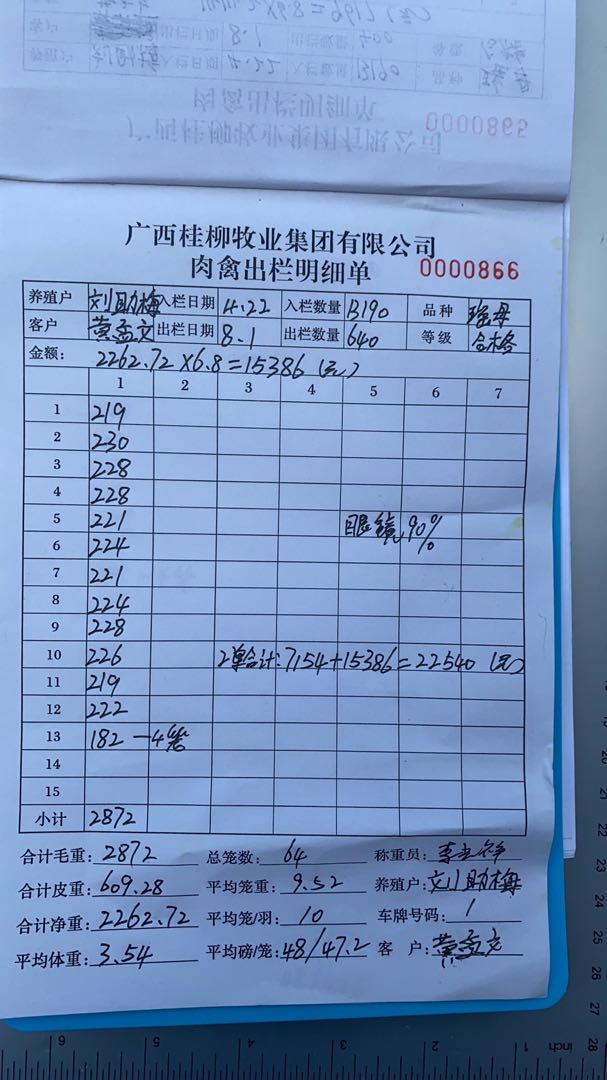 0000865
广西桂柳牧业集团有限公司
肉禽出栏明细单 0000866
养殖户 刘助梅 入栏日期 4.22 入栏数量 13190 品种 瑶母
客户 黄孟文 出栏日期 8.1 出栏数量 640 等级 合格
金额: 2262.72×6.8=15386(元)
1 2 3 4 5 6 7
1 219
2 230
3 228
4 228
5 221 眼镜90%
6 224
7 221
8 224
9 228
10 226 2单合计:7154+15386=22540(元)
11 219
12 222
13 182—4笼
14
15
小计 2872
合计毛重: 2872 总笼数: 64 称重员:
合计皮重: 609.28 平均笼重: 9.52 养殖户: 刘助梅
合计净重: 2262.72 平均笼/羽: 10 车牌号码: 1
平均体重: 3.54 平均磅/笼: 48/47.2 客户: 黄孟文